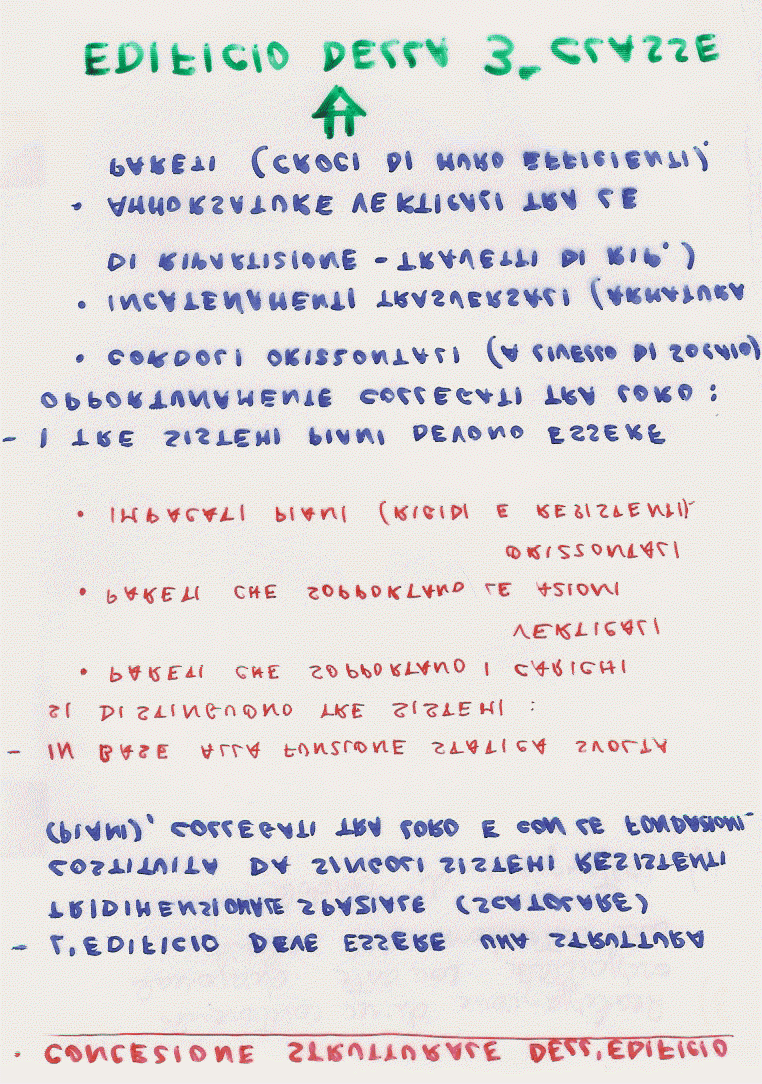 • CONCEZIONE STRUTTURALE DELL'EDIFICIO
- L'EDIFICIO DEVE ESSERE UNA STRUTTURA
TRIDIMENSIONALE SPAZIALE (SCATOLARE)
COSTITUITA DA SINGOLI SISTEMI RESISTENTI
(PIANI), COLLEGATI TRA LORO E CON LE FONDAZIONI.
- IN BASE ALLA FUNZIONE STATICA SVOLTA
SI DISTINGUONO TRE SISTEMI :
• PARETI CHE SOPPORTANO I CARICHI
VERTICALI
• PARETI CHE SOPPORTANO LE AZIONI
ORIZZONTALI
• IMPALCATI PIANI (RIGIDI E RESISTENTI)
- I TRE SISTEMI PIANI DEVONO ESSERE
OPPORTUNAMENTE COLLEGATI TRA LORO :
• CORDOLI ORIZZONTALI (A LIVELLO DI SOLAIO)
• INCATENAMENTI TRASVERSALI (ARMATURA
DI RIPARTIZIONE - TRAVETTI DI RIP.)
• AMMORSATURE VERTICALI TRA LE
PARETI (CROCI DI MURO EFFICIENTI).
EDIFICIO DELLA 3ª CLASSE